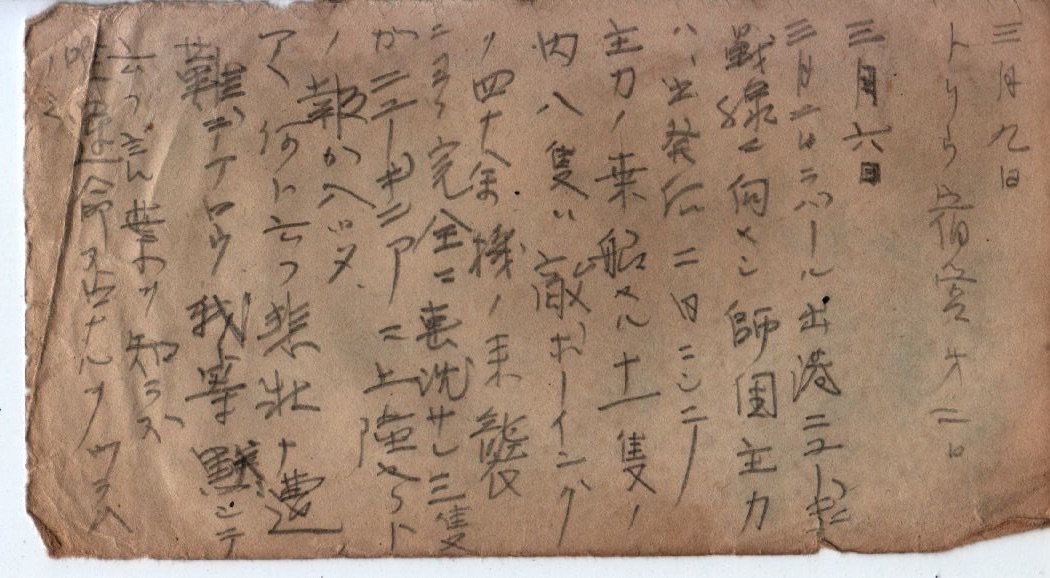 三月九日
トリウ宿営オ二日
三月六日
三月二日ラバール出港ニューギニヤ
戦線ニ向ヘシ師団主力
ハ、出発后二日ニシテ
主力ノ乗船セル十一隻ノ
内八隻ハ敵ボーイング
ノ四十余機ノ来襲
ニヨリ完全ニ轟沈サレ三隻
がニューギニアニ上陸セリト
ノ報か入ッタ、
アヽ何に云フ悲壮ナ遭
難デアロウ我寧黙シテ
云フ言葉ヲ知ラズ
唯運命ノ